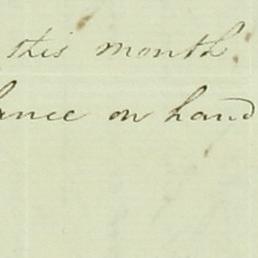 this month
ance on hand